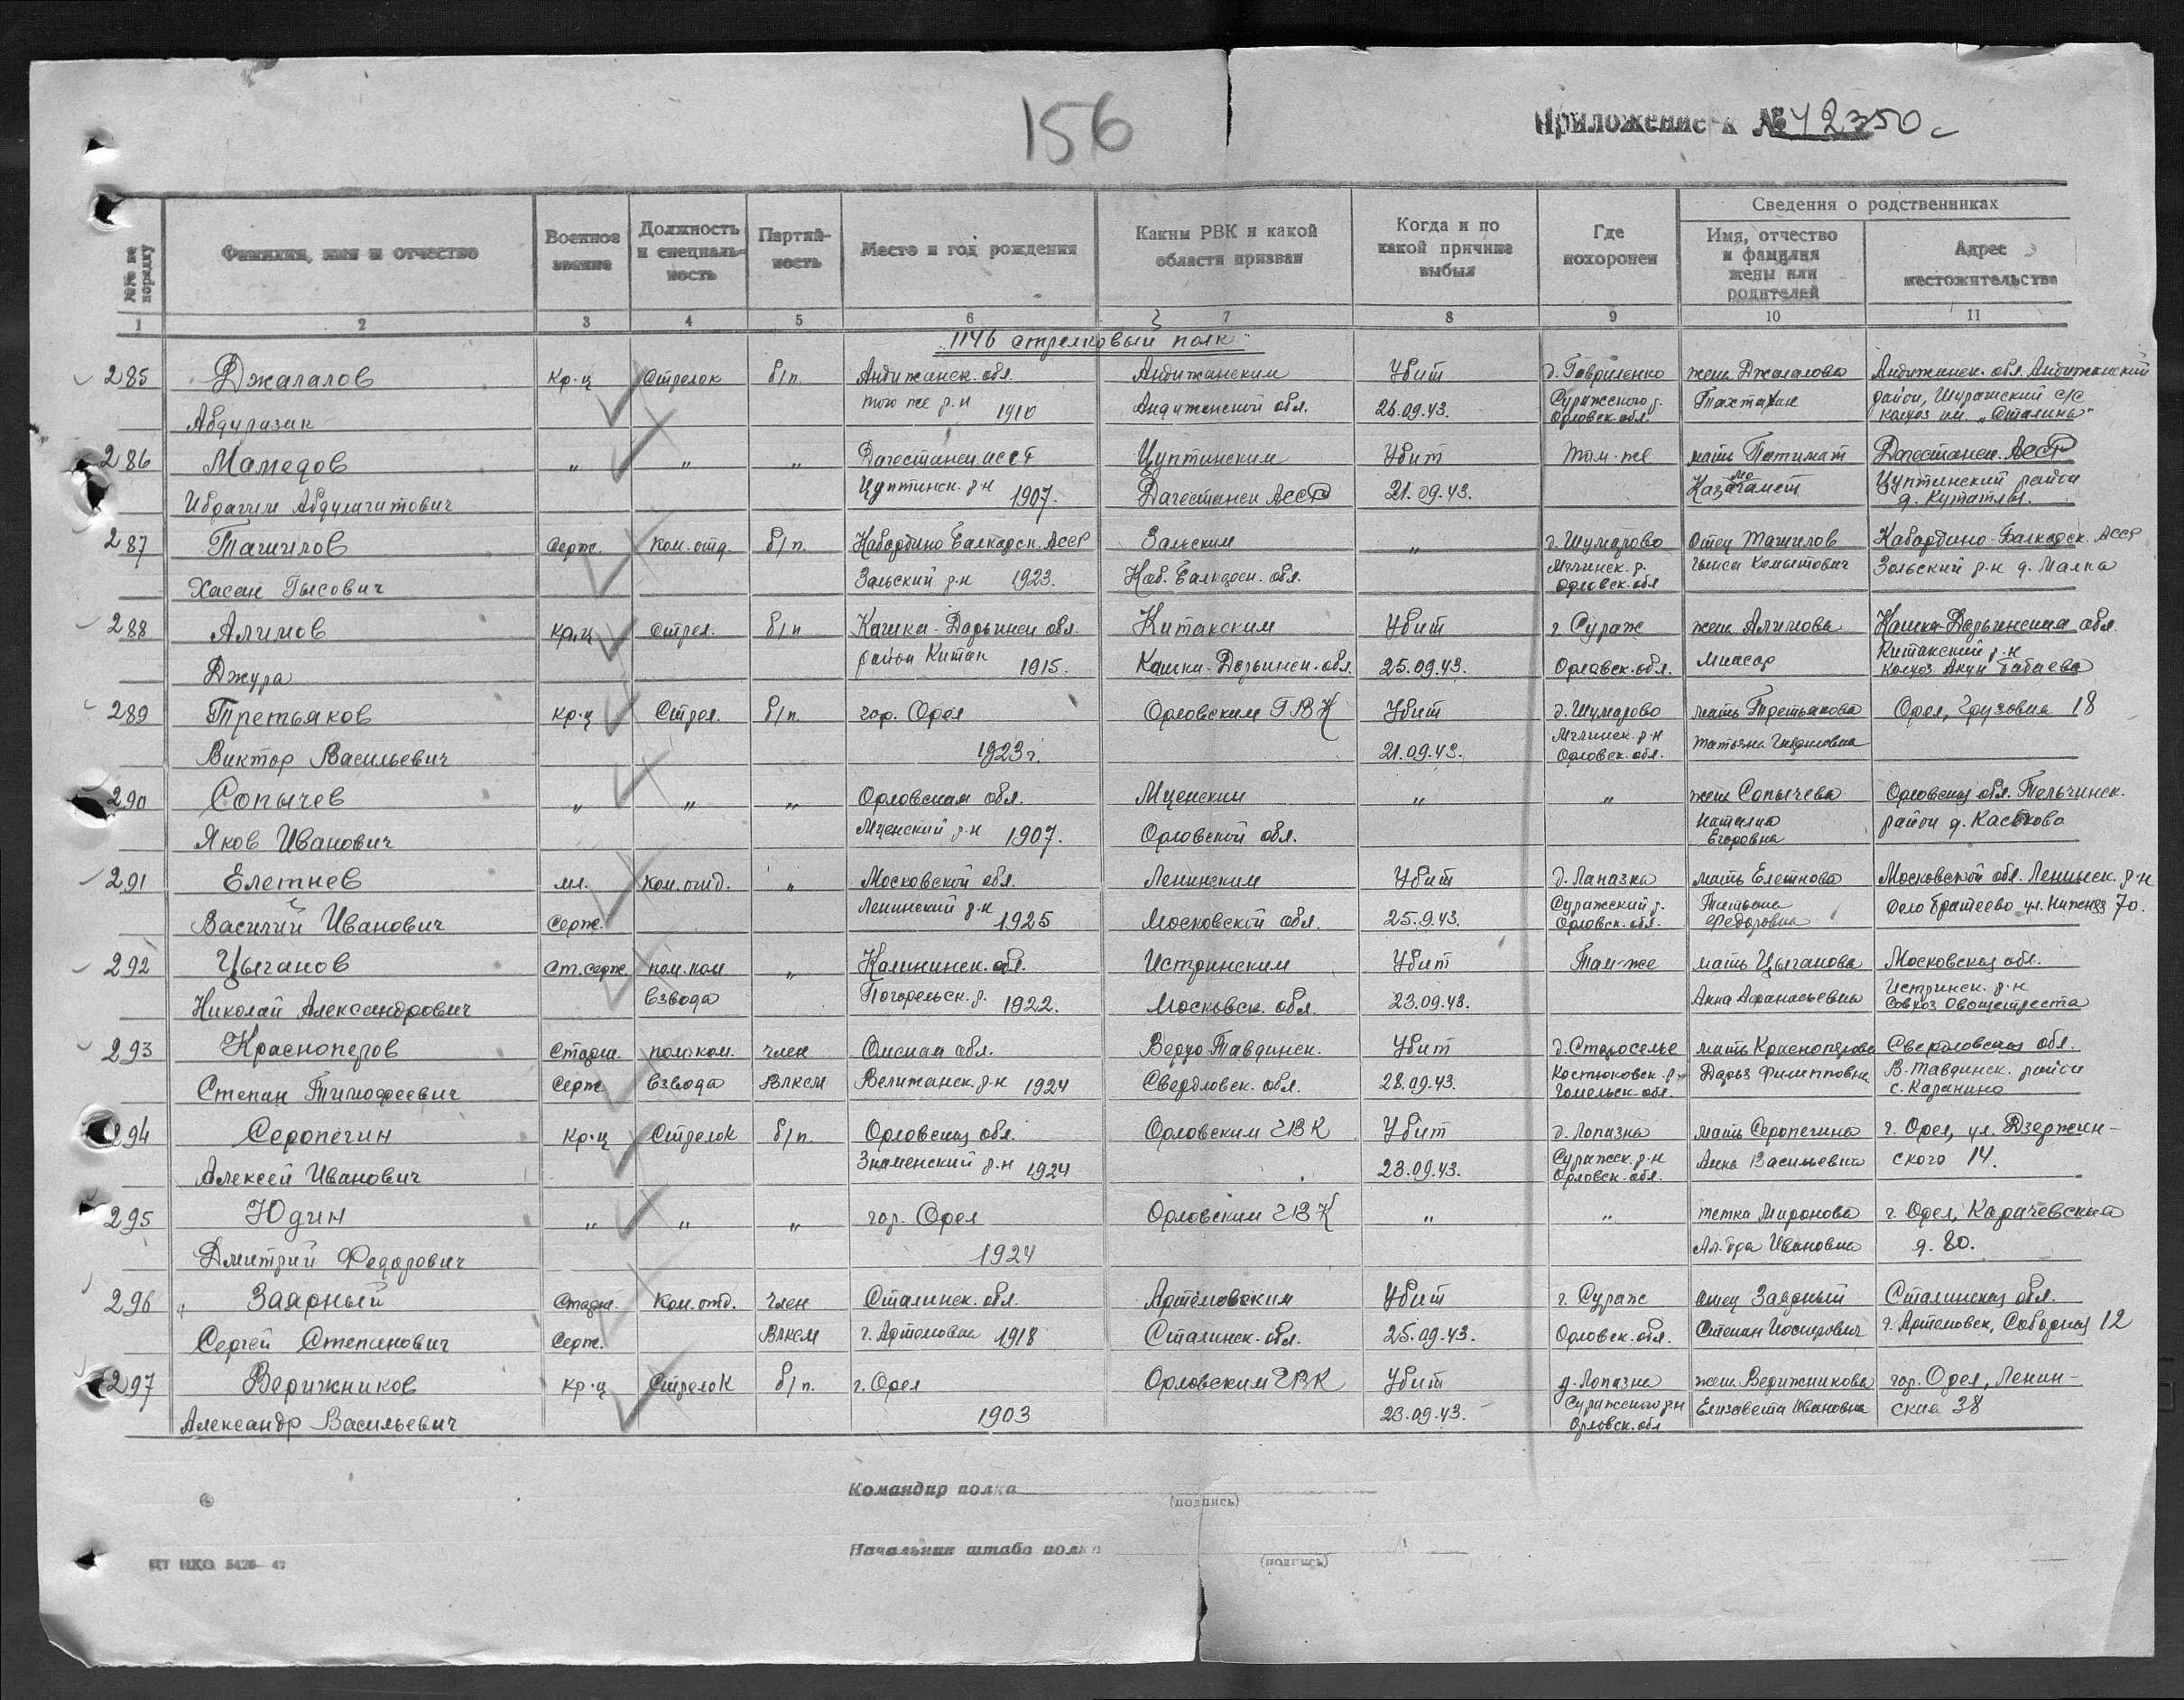 156
Приложение к № 42350с
№№ по порядку
Фамилия, имя и отчество
Военное звание
Должность и специаль-ность
Партий-ность
Место и год рождения
Каким РВК и какой области призван
Когда и по какой причине выбыл
Где похоронен
Сведения о родственниках
Имя, отчество и фамилия жены или родителей
Адрес местожительства
1 2 3 4 5 6 7 8 9 10 11
1146 стрелковый полк
285 Джалалов кр-ц Стрелок б/п. Андижанск. обл. Андижанским Убит д. Гавриленко жена Джалалова Андижанск. обл. Андижанский
Абдулазин того же р-н 1910 Андижанской обл. 26.09.43. Суражского р. Орловск. обл. Тахтахан район, Шурашский с/с колхоз им. „Сталина"
286 Мамедов „ „ „ Дагестанск АССР Цунтинским Убит Там-же мать Патимат Дагестанск. АССР
Ибрагим Абдулагитович Цунтинск. р-н 1907. Дагестанск АССР 21.09.43. Цунтинский район д. Кутатлы.
287 Ташилов Серж. Ком. отд. б/п. Кабардино Балкарск. АССР Зальским „ д. Шумарово Отец Ташилов Кабардино-Балкарск. АССР
Хасан Гысович Зальский р-н 1923. Каб. Балкарск. обл. Мглинск. р. Орловск. обл Гыиса Зольский р-н д. Малка
288 Алимов кр-ц Стрел. б/п Кашка-Дарьинск обл. Китакским Убит г. Сураж жена Алимова Кашка-Дарьинская обл.
Джура район Китак 1915. Кашка-Дарьинск. обл. 25.09.43. Орловск. обл. Миасар Китакский р-н колхоз Акун Бабаева
289 Третьяков кр-ц Стрел. б/п. гор. Орел Орловским ГВК Убит д. Шумарово мать Третьякова Орел, Грузовая 18
Виктор Васильевич 1923г. 21.09.43. Мглинск. р-н Орловск. обл. Татьяна
290 Сопычев „ „ „ Орловская обл. Мценским „ „ жена Сопычева Орловская обл. Тельчинск.
Яков Иванович Мценский р-н 1907. Орловской обл. Наталия Егоровна район д. Каськово
291 Елетнев мл. Ком. отд. „ Московской обл. Ленинским Убит д. Лапазна мать Елетнова Московской обл. Ленинск. р-н
Василий Иванович Серж. Ленинский р-н 1925 Московской обл. 25.9.43. Суражский р. Орловск. обл. Татьяна Федоровна село Братеево ул. Нижняя 70.
292 Цыганов Ст. серж. пом. ком „ Калининск. обл. Истринским Убит Там-же мать Цыганова Московская обл.
Николай Александрович взвода Погорельск. р. 1922. Московск. обл. 23.09.43. Анна Афанасьевна Истринск. р-н Совхоз Овощетреста
293 Красноперов Старш. пом. ком. член Омская обл. Верхо-Тавдинск. Убит д. Староселье мать Красноперова Свердловская обл.
Степан Тимофеевич Серж. взвода ВЛКСМ Велижанск. р-н 1924 Свердловск. обл. 28.09.43. Костюковск. р-н Гомельск. обл. Дарья Филипповна В-Тавдинск. район с. Каранино
294 Серопегин кр-ц Стрелок б/п. Орловская обл. Орловским ГВК Убит д. Лопазна мать Серопегина г. Орел, ул. Дзержин-
Алексей Иванович Знаменский р-н 1924 23.09.43. Суражск. р-н Орловск. обл. Анна Васильевна ского 14.
295 Юдин „ „ „ гор. Орел Орловским ГВК „ „ тетка Миронова г. Орел, Карачевская
Дмитрий Федорович 1924 Ал-дра Ивановна д. 80.
296 Заярный Старш. Ком. отд. Член Сталинск. обл. Артемовским Убит г. Сураж отец Заярный Сталинская обл.
Сергей Степанович Серж. ВЛКСМ г. Артемовка 1918 Сталинск. обл. 25.09.43. Орловск. обл. Степан Иосифович г. Артемовск, Соборная 12
297 Верижников кр-ц Стрелок б/п. г. Орел Орловским ГВК Убит д. Лопазна жена Верижникова гор. Орел, Ленин-
Александр Васильевич 1903 23.09.43. Суражского р-н Орловск. обл Елизавета Ивановна ская 38
Командир полка
(подпись)
Начальник штаба полка
(подпись)